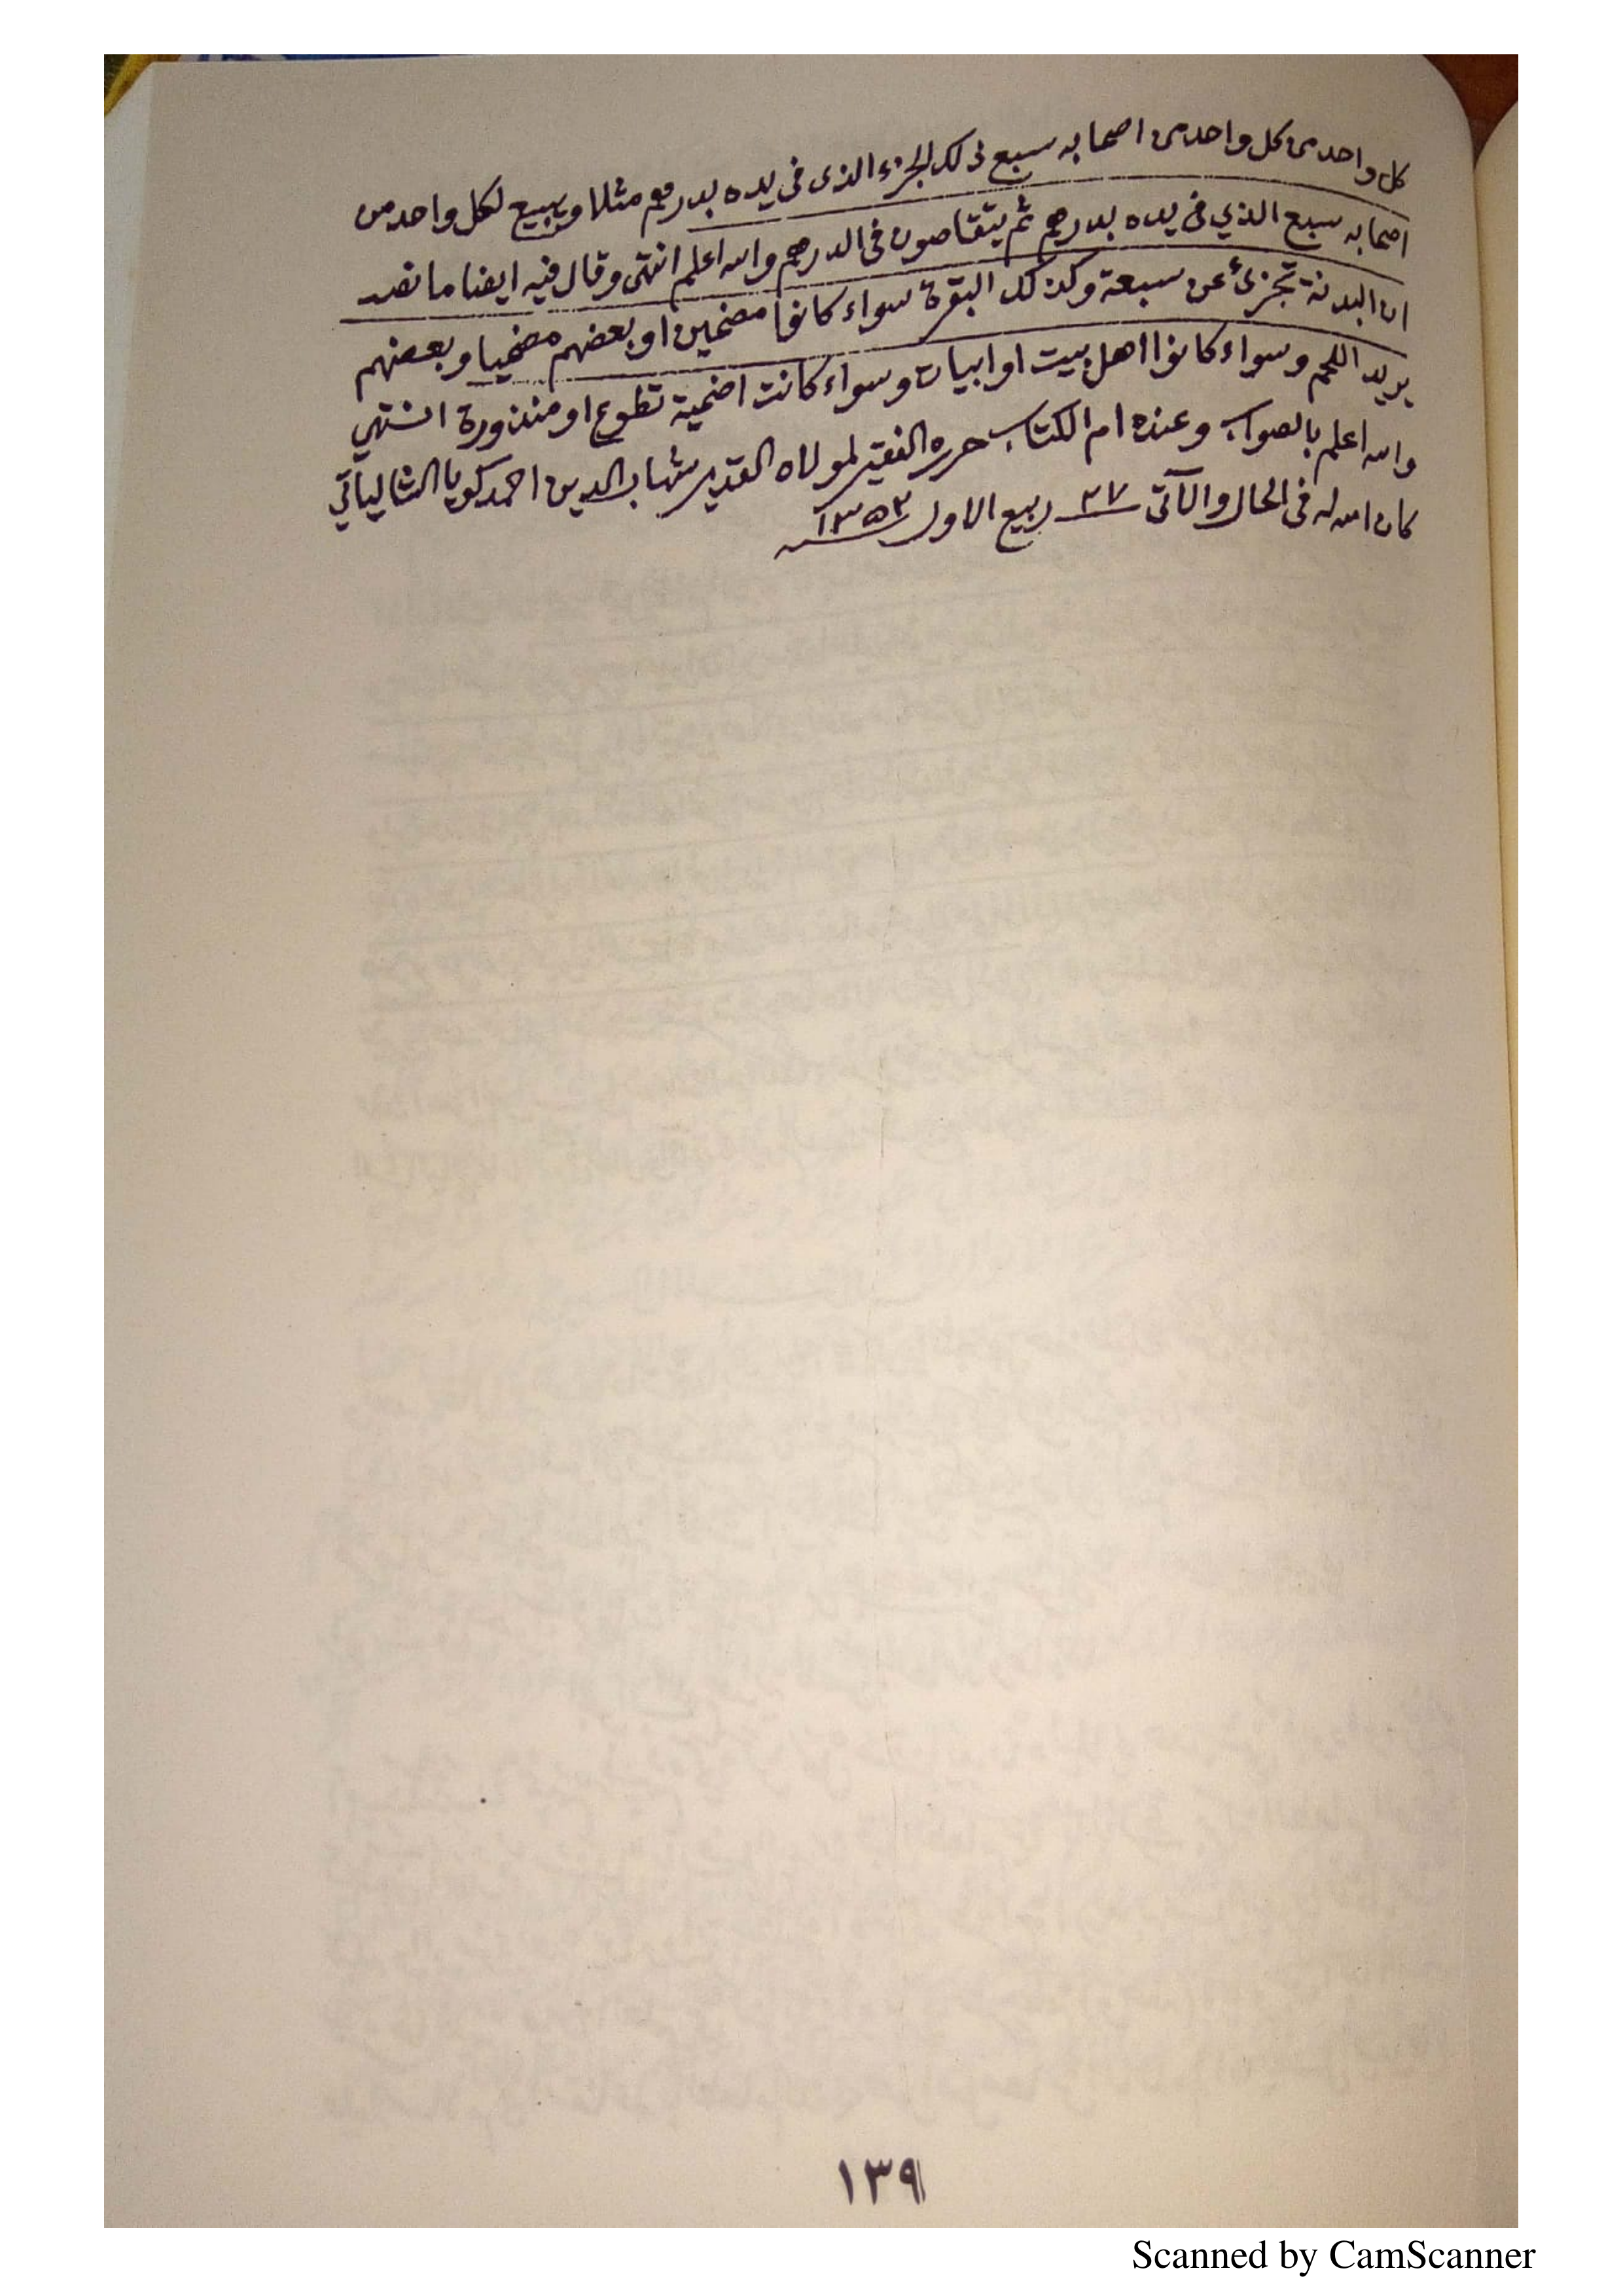 كل واحد من كل واحد من اصحابه سبع ذلك الجزء الذى فى يده بدرهم مثلا ويبيع لكل واحد من
اصحابه سبع الذي فى يده بدرهم ثم يتقاصون فى الدرهم والله اعلم انتهى وقال فيه ايضا ما نصه
ان البدنة تجزئ عن سبعة وكذلك البقرة سواء كانوا مضحين او بعضهم مضحيا وبعضهم
يريد اللحم وسواء كانوا اهل بيت او ابيات وسواء كانت اضحية تطوع او منذورة انتهي
والله اعلم بالصواب وعنده ام الكتاب حرره الفقير لمولاه القدير شهاب الدين احمد كويا الشالياتي
كان الله له فى الحال والآتى ٢٧ ربيع الاول ١٣٥٢
١٣٩
Scanned by CamScanner